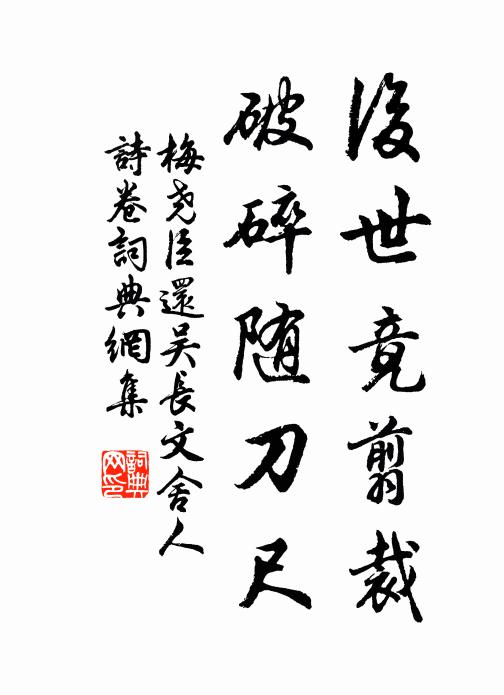 後世竟翦裁
破碎随刀尺
梅尧臣還吴長文舍人
詩卷詞典網集
詞典网印